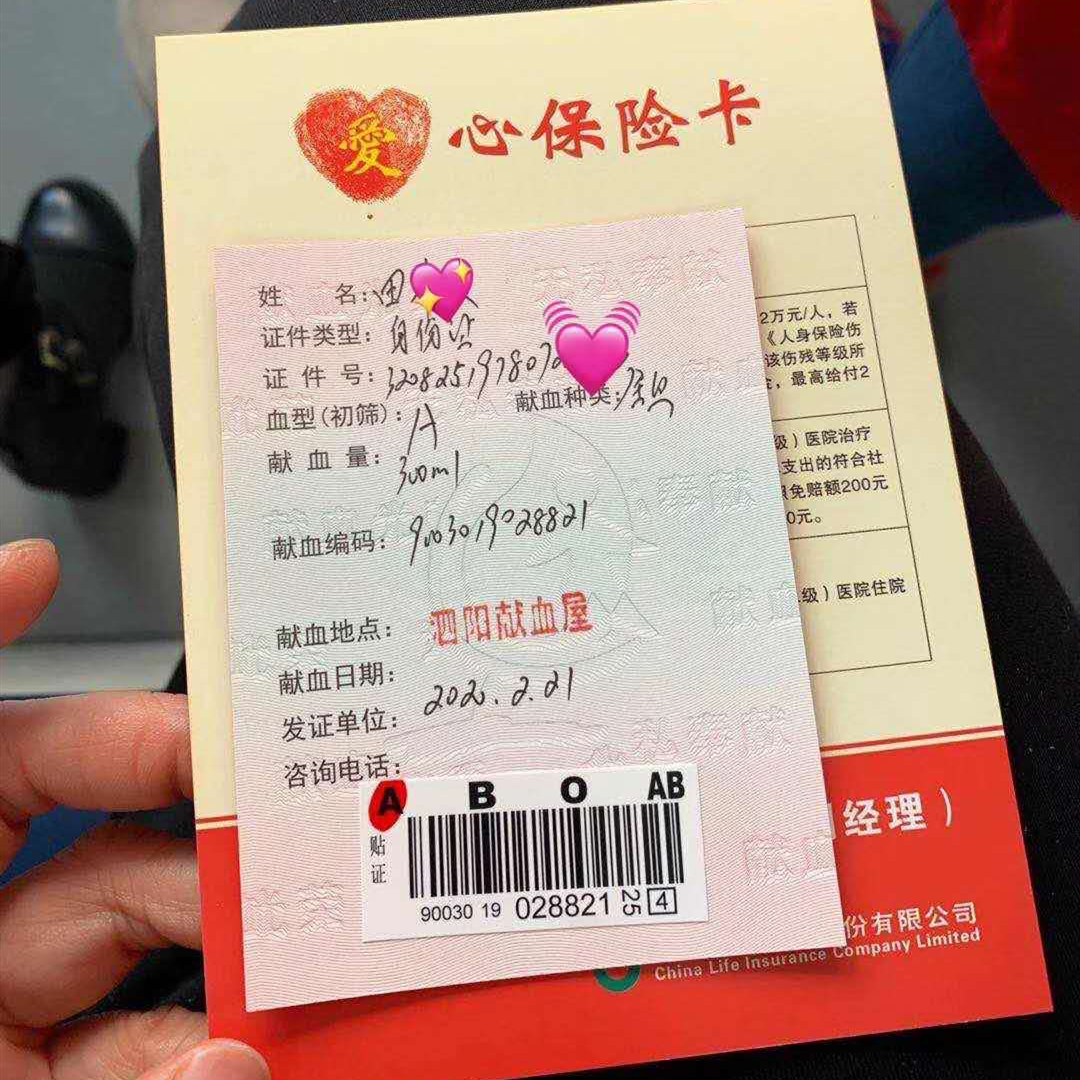 爱心保险卡
姓 名：田
证件类型：身份证
证 件 号：3208251978072
血型(初筛)：A
献血种类：全血
献 血 量：300ml
献血编码：9003019028821
献血地点：泗阳献血屋
献血日期：2020.2.21
发证单位：
咨询电话：
A B O AB
贴证
90030 19 028821 25 4
2万元/人，若
《人身保险伤
该伤残等级所
，最高给付2
级）医院治疗
支出的符合社
免赔额200元
0元。
级）医院住院
经理）
份有限公司
China Life Insurance Company Limited